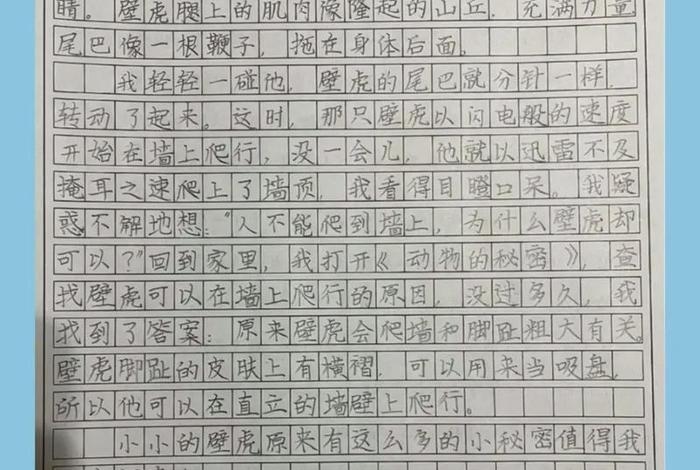 睛。壁虎腿上的肌肉像隆起的山丘，充满力量
尾巴像一根鞭子，拖在身体后面。
我轻轻一碰他，壁虎的尾巴就分针一样，
转动了起来。这时，那只壁虎以闪电般的速度
开始在墙上爬行，没一会儿，他就以迅雷不及
掩耳之速爬上了墙顶，我看得目瞪口呆。我疑
惑不解地想："人不能爬到墙上，为什么壁虎却
可以？"回到家里，我打开《动物的秘密》，查
找壁虎可以在墙上爬行的原因，没过多久，我
找到了答案：原来壁虎会爬墙和脚趾粗大有关。
壁虎脚趾的皮肤上有横褶，可以用来当吸盘，
所以他可以在直立的墙壁上爬行。
小小的壁虎原来有这么多的小秘密值得我